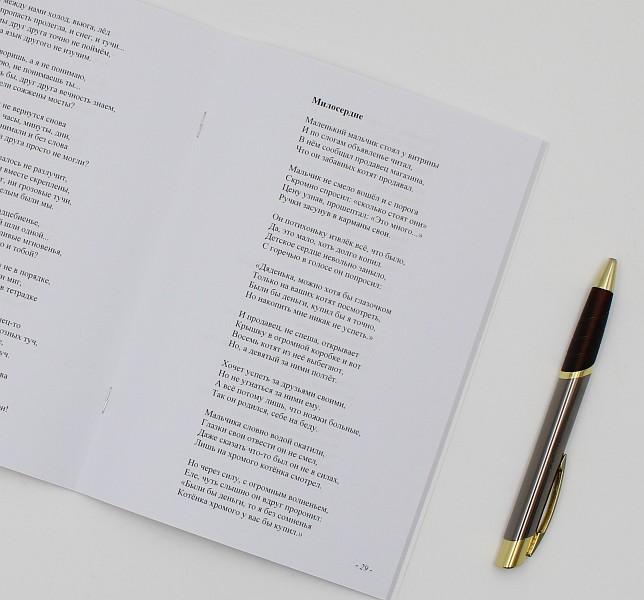 между нами холод, вьюга, лёд
пропасть пролегла, и снег, и тучи...
друг друга точно не поймём,
язык другого не изучим.
а я не понимаю,
не понимаешь ты...
бы, друг друга вечность знаем,
сожжены мосты?
не вернутся снова
часы, минуты, дни,
и без слова
друг друга просто не могли?
не разлучит,
вместе скреплены,
ни грозовые тучи.
были мы.
шли одной...
мгновенья,
и тобой?
не в порядке,
миг,
в тетрадке
туч,
Милосердие
Маленький мальчик стоял у витрины
И по слогам объявленье читал,
В нём сообщал продавец магазина,
Что он забавных котят продавал.
Мальчик не смело вошёл и с порога
Скромно спросил: «сколько стоят они»
Цену узнав, прошептал: «Это много...»
Ручки засунув в карманы свои.
Он потихоньку извлёк всё, что было,
Да, это мало, хоть долго копил.
Детское сердце невольно заныло,
С горечью в голосе он попросил:
«Дяденька, можно хотя бы глазочком
Только на ваших котят посмотреть,
Были бы деньги, купил бы я точно,
Но накопить мне никак не успеть.»
И продавец, не спеша, открывает
Крышку в огромной коробке и вот
Восемь котят из неё выбегают,
Но, а девятый за ними ползёт.
Хочет успеть за друзьями своими,
Но не угнаться за ними ему.
А всё потому лишь, что ножки больные,
Так он родился, себе на беду.
Мальчика словно водой окатили,
Глазки свои отвести он не смел,
Даже сказать что-то был он не в силах,
Лишь на хромого котёнка смотрел.
Но через силу, с огромным волненьем,
Еле, чуть слышно он вдруг проронил:
«Были бы деньги, то я без сомненья
Котёнка хромого у вас бы купил.»
- 29 -